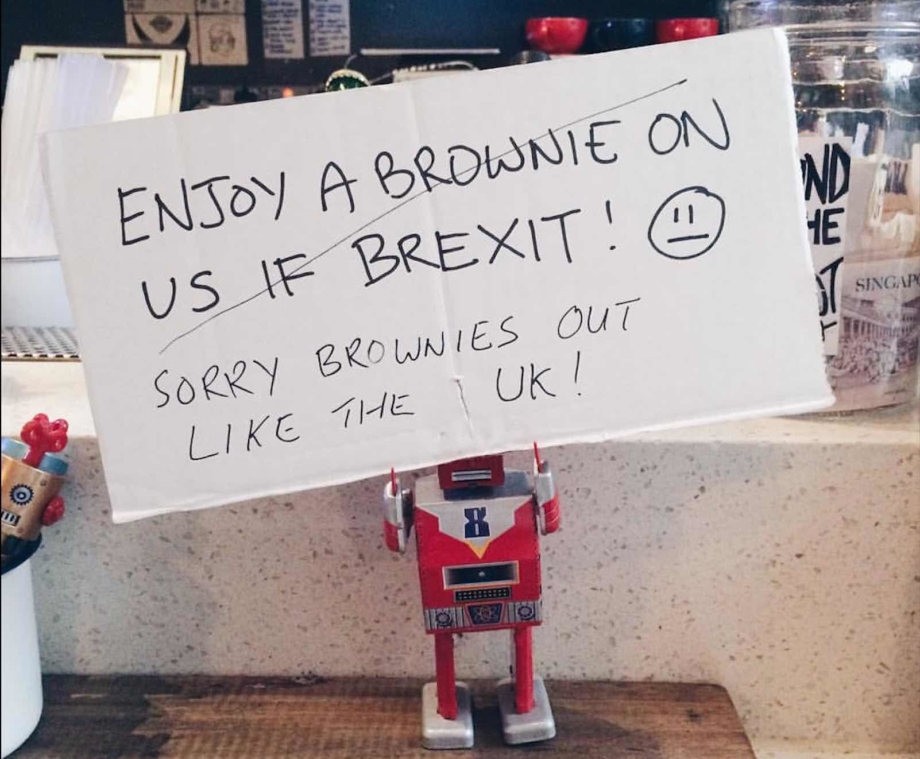 ENJOY A BROWNIE ON
US IF BREXIT!
SORRY BROWNIES OUT
LIKE THE UK!
ND
HE
ST
SINGAPO
8